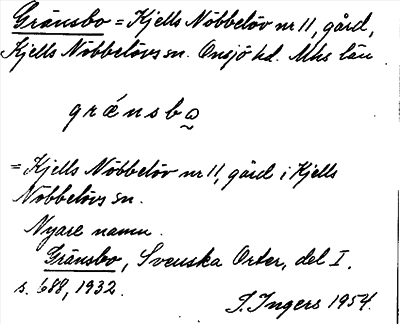 Gränsbo = Kjells Nöbbelöv nr 11, gård,
Kjells Nöbbelövs sn. Onsjö hd. Mhs län.
gránsbo̰
= Kjells Nöbbelöv nr 11, gård i Kjells
Nöbbelövs sn.
Nyare namn.
Gränsbo, Svenska Orter, del I.
s. 688, 1932.
I. Ingers 1954.